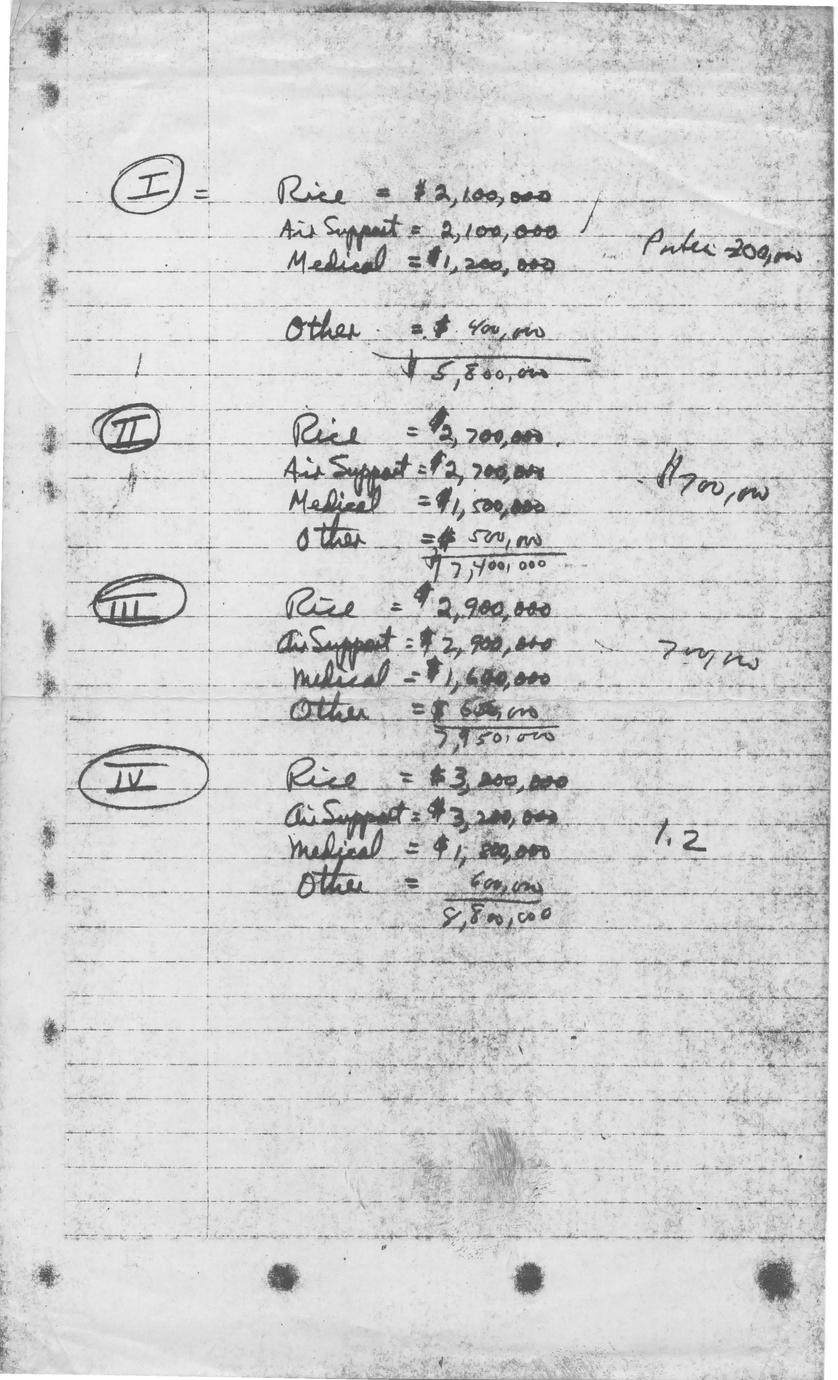 I = Rice = $2,100,000
Air Support = 2,100,000
Medical = $1,200,000
200,000
Other = $ 400,000
$ 5,800,000
II Rice = $2,700,000
Air Support = $2,700,000
$700,000
Medical = $1,500,000
Other = $ 500,000
$7,400,000
III Rice = $2,900,000
Air Support = $2,900,000
700,000
Medical = $1,600,000
Other = $ 600,000
7,950,000
IV Rice = $3,200,000
Air Support = $3,200,000
1.2
Medical = $1,800,000
Other = 600,000
8,800,000